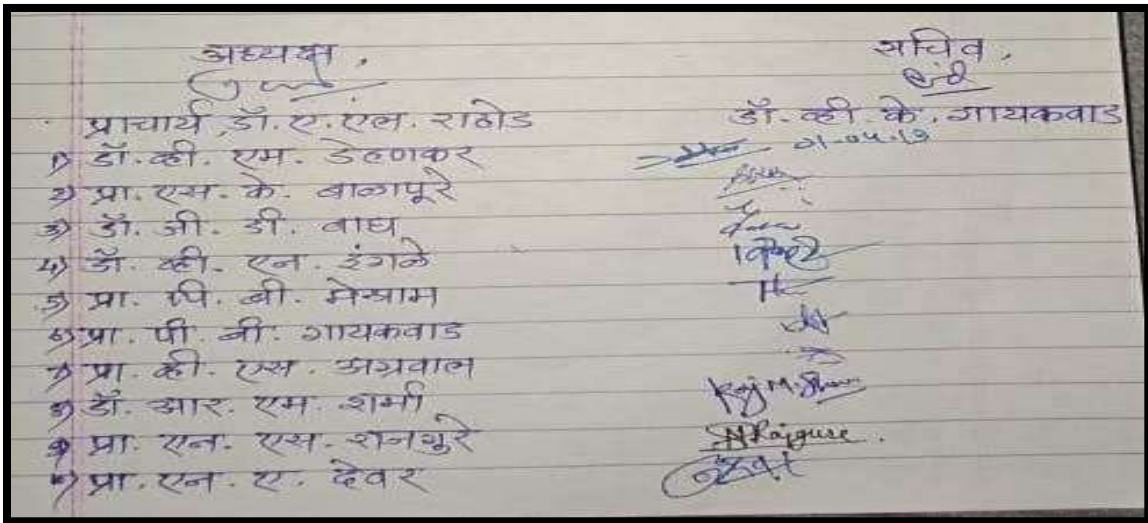 अध्यक्ष, सचिव,
प्राचार्य डॉ. ए. एल. राठोड डॉ. व्ही. के. गायकवाड
1) डॉ. व्ही. एम. डेहणकर
2) प्रा. एस. के. बाळापूरे
3) डॉ. जी. डी. वाघ
4) डॉ. व्ही. एन. इंगळे
5) प्रा. पि. बी. मेश्राम
6) प्रा. पी. बी. गायकवाड
7) प्रा. व्ही. एस. अग्रवाल
8) डॉ. आर. एम. शर्मा
9) प्रा. एन. एस. राजगूरे Rajgure.
प्रा. एन. ए. देवर